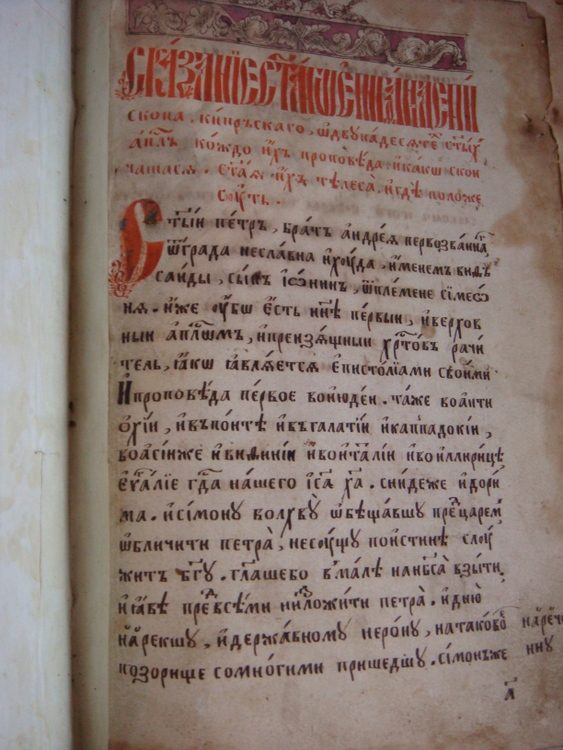 Сказа́нїе ст҃а́гѡ є҆пифа́нїа є҆пи
скопа, ки́пръскагѡ, ѡ҆двуна́десѧте ст҃ы́хъ
а҆пл҃ъ. ко́ждо и҆́хъ проповѣ́да. и҆ка́кѡ скон
чашасѧ. ст҃а́ѧ и҆́хъ тѣлеса̀. и҆гдѣ̀ положе
ꙋть.
Ст҃ы́и пе́тръ, бра́тъ а҆ндре́ѧ первозва́ннаⷢ҇,
ѿгра́да несла́вна и҆хꙋ́да. и҆́менемъ виѳъ
саи́ды, сы́нъ і҆ѡ́нинъ, ѿпле́мене сїмеѡ́
нѧ. и҆́же ᲂу҆́бѡ є҆́сть и҆н҃ѣ пе́рвыи, и҆ве́рхов
ныи а҆пⷭ҇лѡмъ, и҆ преизѧ́щныи хрⷭ҇то́въ рачи́
тель, ꙗ҆́кѡ ꙗ҆влѧ́етсѧ є҆писто́лїами свои́ми
И҆проповѣ́да пе́рвое вої҆юде́и. та́же воа҆нти
ѡ҆хі́и, и҆въпо́нтѣ и҆въгала́тїи и҆каппадокі́и,
воа҆сі́иже и҆виѳи́нїи и҆вої҆та́лїи и҆вої҆ллири́цѣ
є҆ѵⷢ҇а́лїе гдⷭ҇а на́шего і҆с҃а хрⷭ҇та̀. сни́деже и҆до́ри
ма. и҆сі́монꙋ волхвꙋ̀ ѡ҆бѣща́вшꙋ преⷣцаре́мъ
ѡ҆бличи́ти петра̀, несꙋ́щꙋ пои́стинѣ слꙋ
жи́тъ бг҃ꙋ. гл҃ашебо вма́лѣ нанб҃са̀ взы́ти,
и҆ꙗ҆́вѣ преⷣвсѣ́ми низложи́ти петра̀. и҆дню̀
наре́кшꙋ, и҆держа́вномꙋ неро́нꙋ, натаково́е
позо́рище сомно́гими прише́дшꙋ. сі́монъже